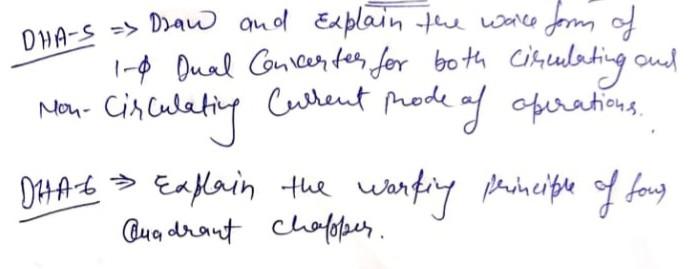 DHA-5 => Draw and Explain the wave form of
1-ϕ Dual Converter for both Circulating and
Non-Circulating Current mode of operations.
DHA-6 => Explain the working principle of four
Quadrant chopper.